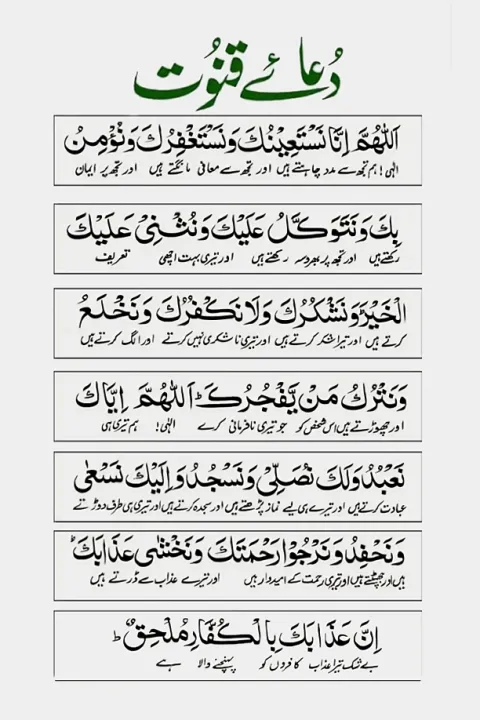 دُعائے قنوُت
اَللّٰهُمَّ اِنَّا نَسْتَعِیْنُكَ وَنَسْتَغْفِرُكَ وَنُؤْمِنُ
الٰہی! ہم تجھ سے مدد چاہتے ہیں اور تجھ سے معافی مانگتے ہیں اور تجھ پر ایمان
بِكَ وَنَتَوَكَّلُ عَلَیْكَ وَنُثْنِیْ عَلَیْكَ
رکھتے ہیں اور تجھ پر بھروسہ رکھتے ہیں اور تیری بہت اچھی تعریف
الْخَیْرَ وَنَشْكُرُكَ وَلَا نَكْفُرُكَ وَنَخْلَعُ
کرتے ہیں اور تیرا شکر کرتے ہیں اور تیری ناشکری نہیں کرتے اور الگ کرتے ہیں
وَنَتْرُكُ مَنْ یَّفْجُرُكَ ؕ اَللّٰهُمَّ اِیَّاكَ
اور چھوڑتے ہیں اس شخص کو جو تیری نافرمانی کرے الٰہی! ہم تیری ہی
نَعْبُدُ وَلَكَ نُصَلِّیْ وَنَسْجُدُ وَاِلَیْكَ نَسْعٰی
عبادت کرتے ہیں اور تیرے ہی لیے نماز پڑھتے ہیں اور سجدہ کرتے ہیں اور تیری ہی طرف دوڑتے
وَنَحْفِدُ وَنَرْجُوْا رَحْمَتَكَ وَنَخْشٰی عَذَابَكَ ؕ
ہیں اور جھپٹتے ہیں اور تیری رحمت کے امیدوار ہیں اور تیرے عذاب سے ڈرتے ہیں
اِنَّ عَذَابَكَ بِالْكُفَّارِ مُلْحِقٌ ؕ
بے شک تیرا عذاب کافروں کو پہنچنے والا ہے